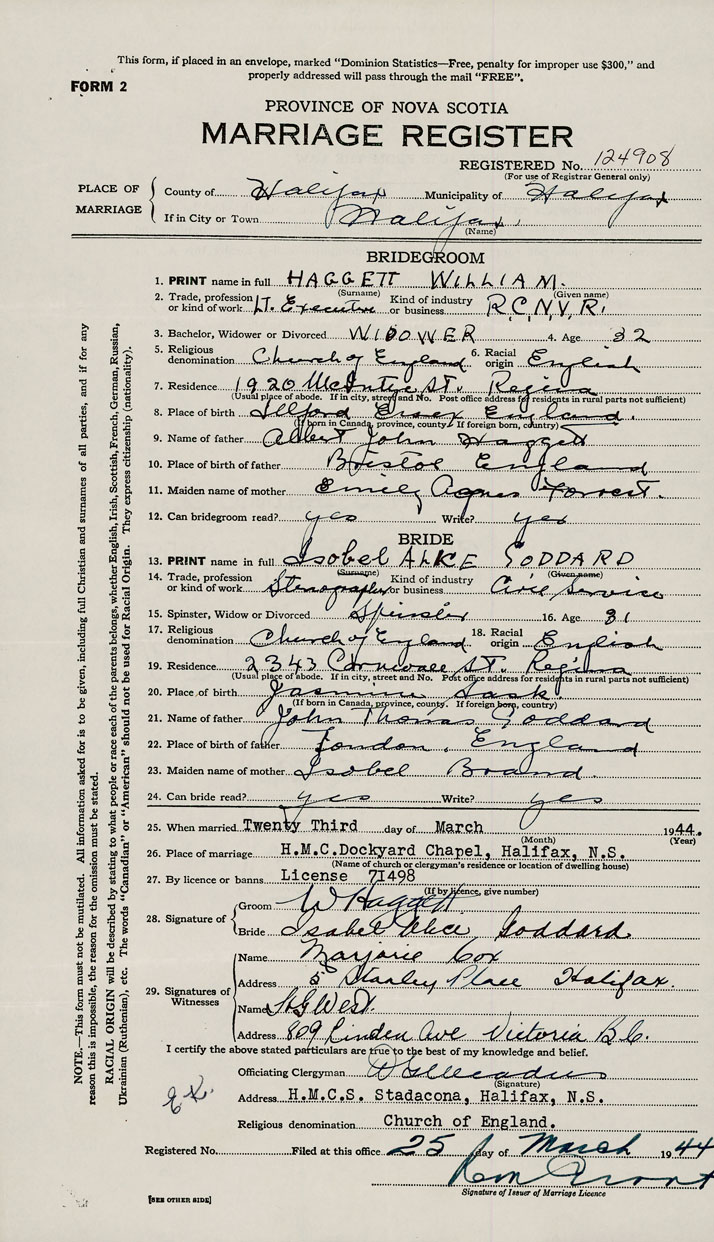 This form, if placed in an envelope, marked “Dominion Statistics—Free, penalty for improper use $300,” and
properly addressed will pass through the mail “FREE”.
FORM 2
PROVINCE OF NOVA SCOTIA
MARRIAGE REGISTER
REGISTERED No. 124908
(For use of Registrar General only)
PLACE OF MARRIAGE
County of Halifax Municipality of Halifax
If in City or Town Halifax
(Name)
BRIDEGROOM
1. PRINT name in full HAGGETT WILLIAM.
(Surname) (Given name)
2. Trade, profession or kind of work Lt. Executive Kind of industry or business R.C.N.V.R.
3. Bachelor, Widower or Divorced WIDOWER 4. Age 32
5. Religious denomination Church of England 6. Racial origin English
7. Residence 1920 McIntyre St. Regina
(Usual place of abode. If in city, street and No. Post office address for residents in rural parts not sufficient)
8. Place of birth Ilford Essex England.
(If born in Canada, province, county. If foreign born, country)
9. Name of father Albert John Haggett
10. Place of birth of father Bristol England
11. Maiden name of mother Emily Agnes Forrest.
12. Can bridegroom read? yes Write? yes
BRIDE
13. PRINT name in full Isobel ALICE GODDARD
(Surname) (Given name)
14. Trade, profession or kind of work Stenographer Kind of industry or business Civil Service
15. Spinster, Widow or Divorced Spinster 16. Age 31
17. Religious denomination Church of England 18. Racial origin English
19. Residence 2343 Cornwall St. Regina
(Usual place of abode. If in city, street and No. Post office address for residents in rural parts not sufficient)
20. Place of birth Jasmin Sask.
(If born in Canada, province, county. If foreign born, country)
21. Name of father John Thomas Goddard
22. Place of birth of father London, England
23. Maiden name of mother Isobel Brand.
24. Can bride read? yes Write? yes
25. When married Twenty Third day of March 1944.
(Month) (Year)
26. Place of marriage H.M.C.Dockyard Chapel, Halifax, N.S.
(Name of church or clergyman's residence or location of dwelling house)
27. By licence or banns License 71498
(If by licence, give number)
28. Signature of
Groom W Haggett
Bride Isabel Alice Goddard
29. Signatures of Witnesses
Name Marjorie Cox
Address 5 Stanley Place Halifax.
Name West.
Address 809 Linden Ave Victoria B.C.
I certify the above stated particulars are true to the best of my knowledge and belief.
Officiating Clergyman
(Signature)
Address H.M.C.S. Stadacona, Halifax, N.S.
Religious denomination Church of England.
Registered No. Filed at this office 25 day of March 1944
Signature of Issuer of Marriage Licence
[SEE OTHER SIDE]
NOTE.—This form must not be mutilated. All information asked for is to be given, including full Christian and surnames of all parties, and if for any
reason this is impossible, the reason for the omission must be stated.
RACIAL ORIGIN will be described by stating to what people or race each of the parents belongs, whether English, Irish, Scottish, French, German, Russian,
Ukrainian (Ruthenian), etc. The words “Canadian” or “American” should not be used for Racial Origin. They express citizenship (nationality).